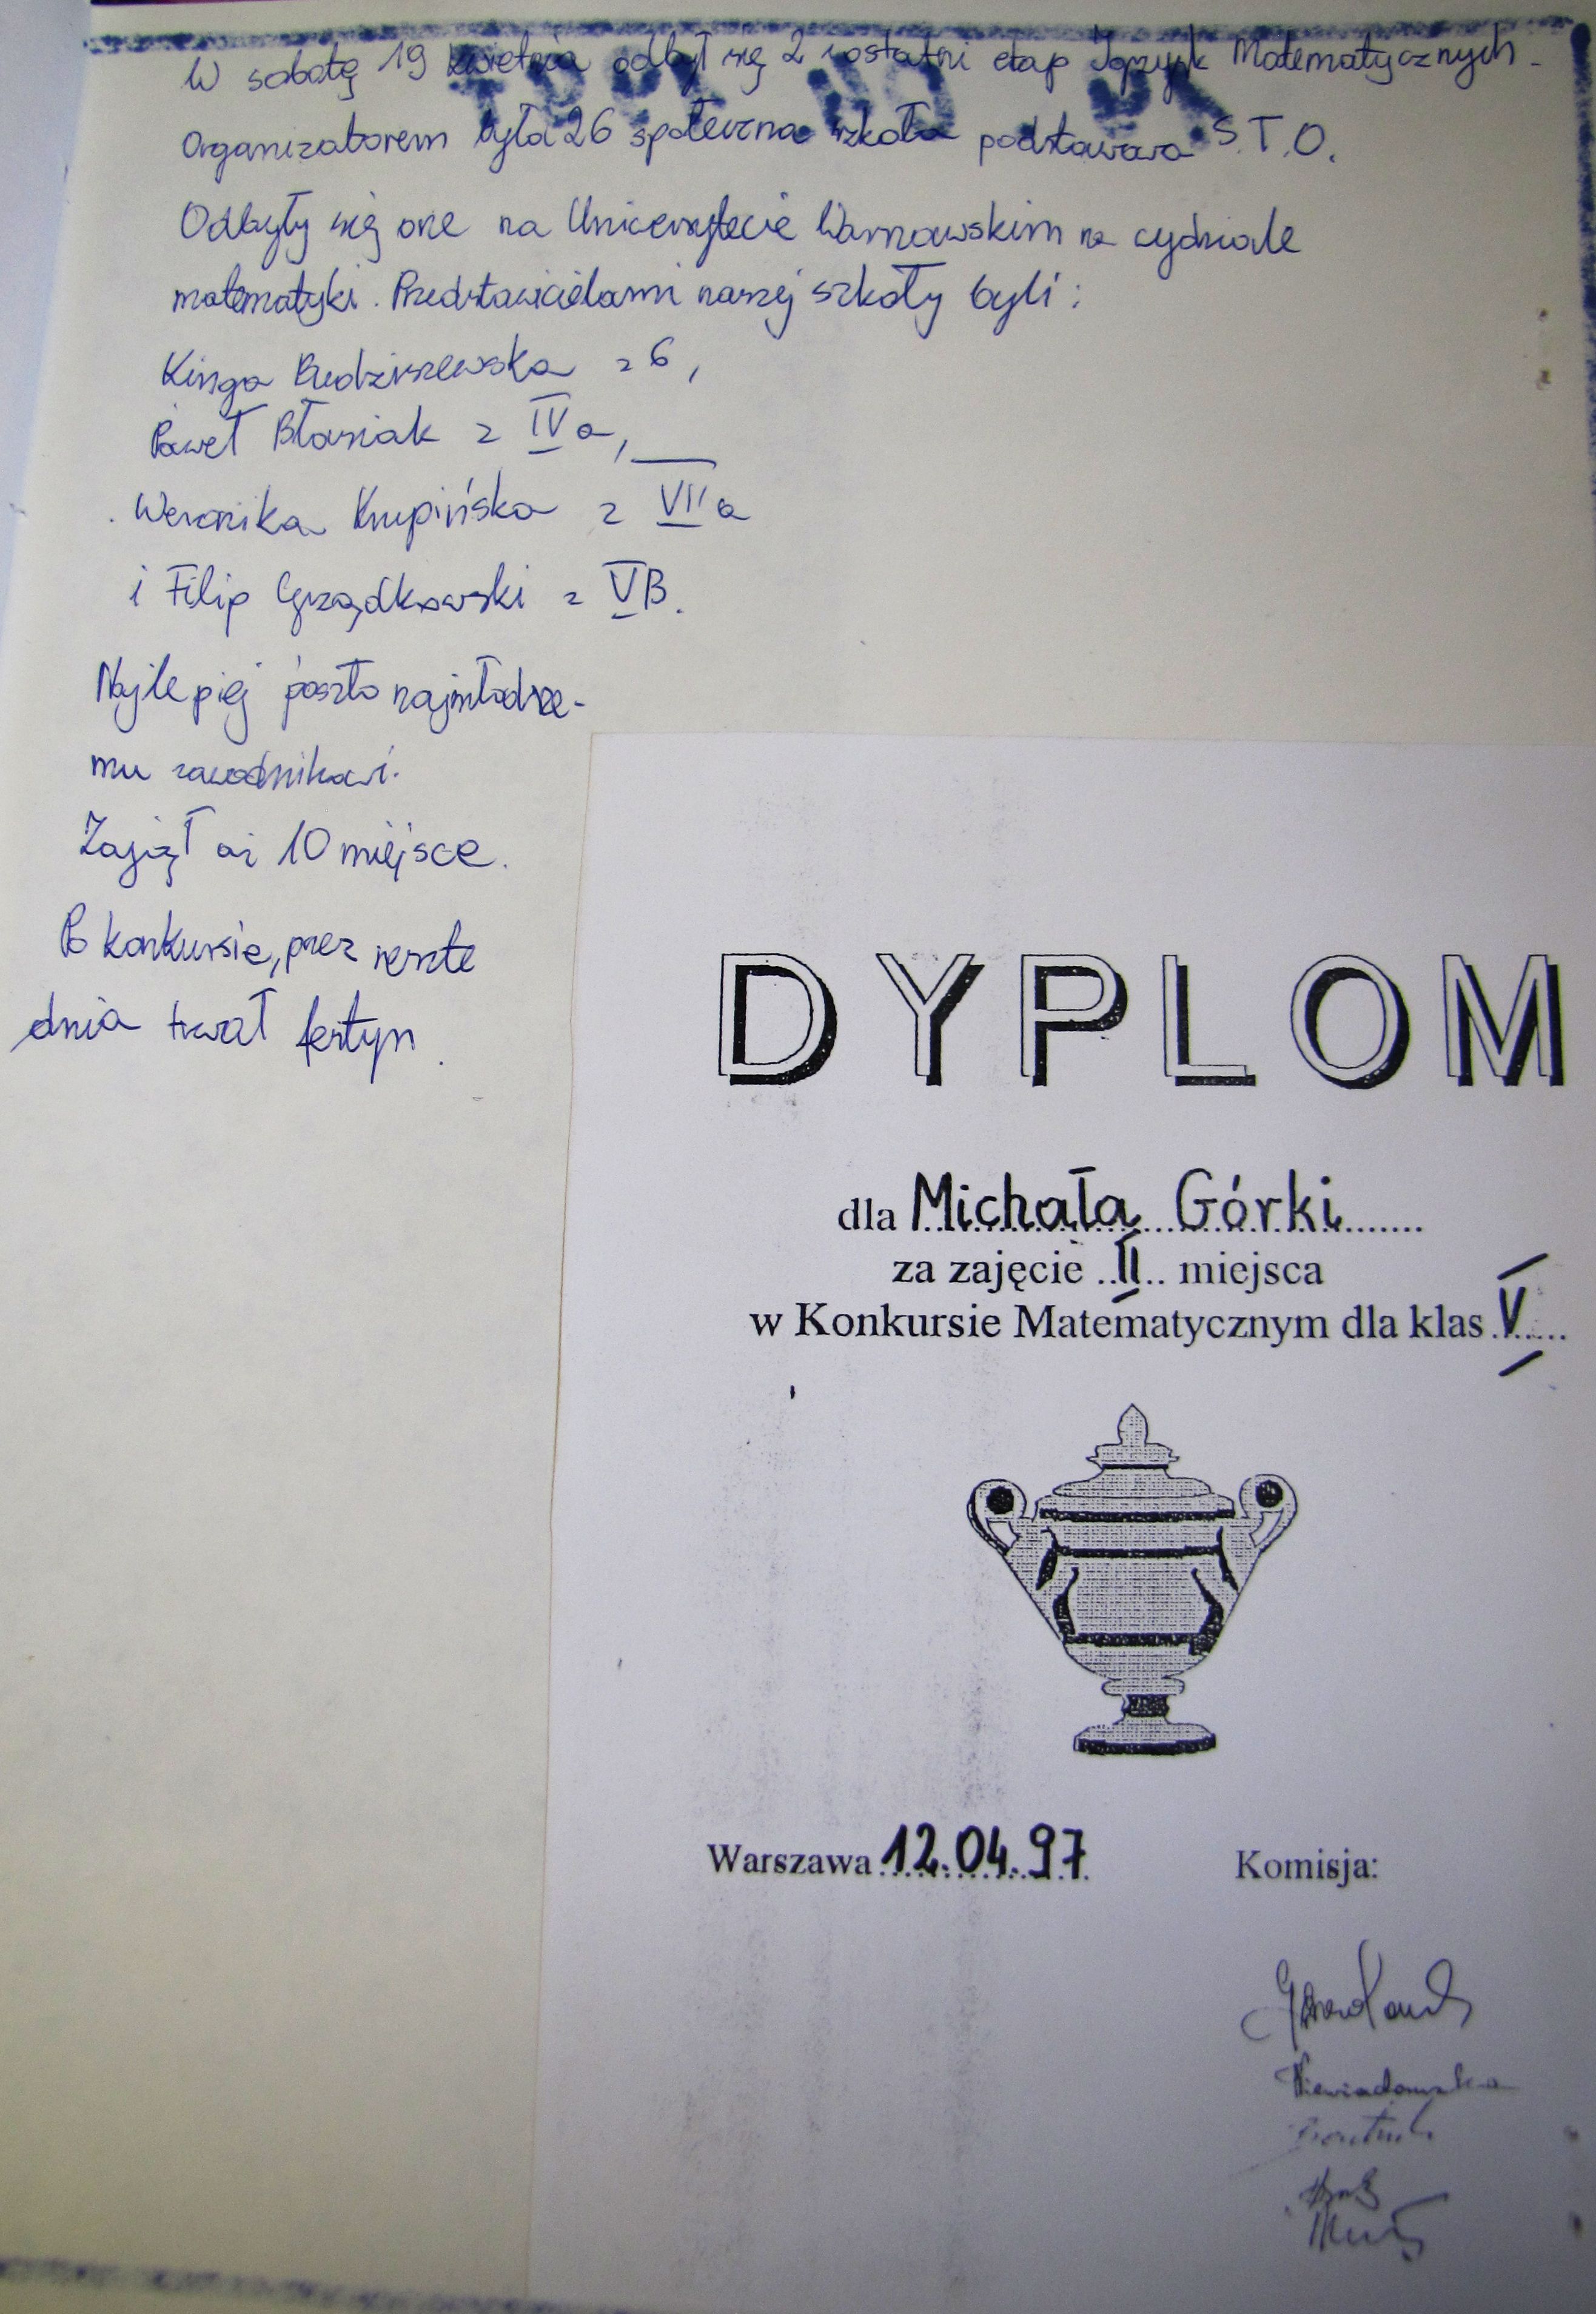 W sobotę 19 kwietnia odbył się 2 i ostatni etap Igrzysk Matematycznych.
Organizatorem była 26 społeczna szkoła podstawowa S.T.O.
Odbyły się one na Uniwersytecie Warszawskim na wydziale
matematyki. Przedstawicielami naszej szkoły byli:
Kinga Budziszewska z 6,
Paweł Błasiak z IV a,
Weronika Krupińska z VII a
i Filip Grządkowski z VB.
Najlepiej poszło najmłodsze-
mu zawodnikowi.
Zajął aż 10 miejsce.
Po konkursie, przez resztę
dnia trwał festyn.
DYPLOM
dla Michała Górki
za zajęcie II miejsca
w Konkursie Matematycznym dla klas V
Warszawa 12.04.97
Komisja:
Niewiadomska